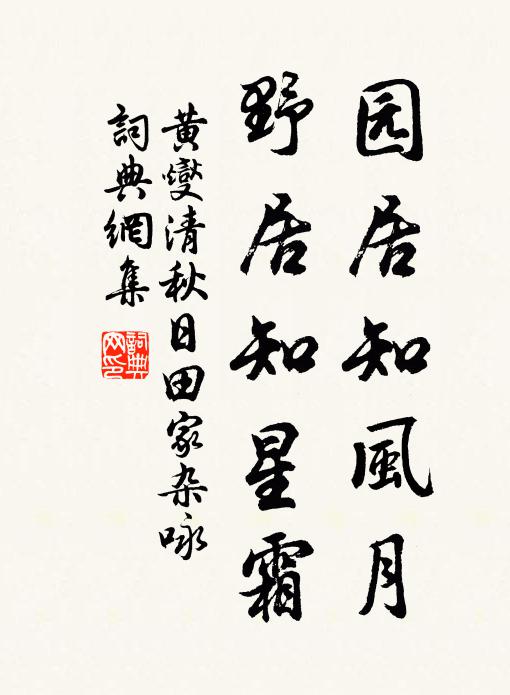 园居知風月
野居知星霜
黄燮清秋日田家杂咏
詞典網集
詞典
网印